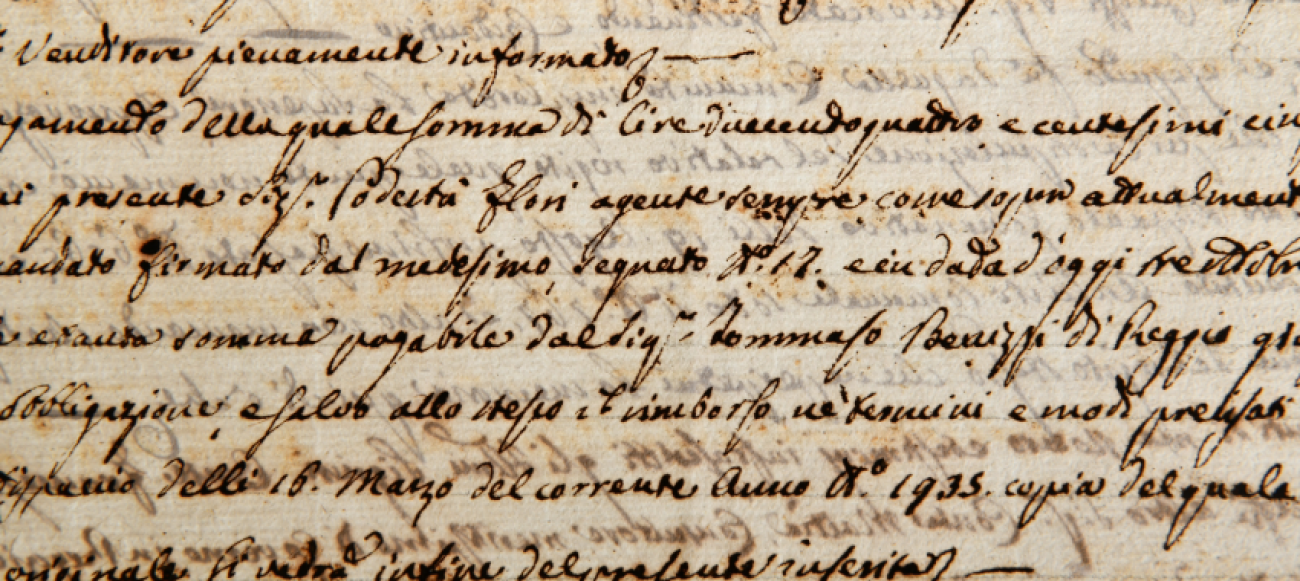 Venditore pienamente informato
gamento della quale somma di Lire duecentoquattro e centesimi cin
presente Sig.r Podestà Flori agente sempre come sopra attualment
andato firmato dal medesimo, segnato N.o 12. e in data d'oggi tre Ottobr
e tanta somma pagabile dal Sig.r Tommaso di Reggio
obbligazione, e salvo allo stesso il rimborso ne termini e modi precisati
dispaccio delli 16. Marzo del corrente Anno N.o 1935. copia del quale
originale si vedrà infine del presente inserita